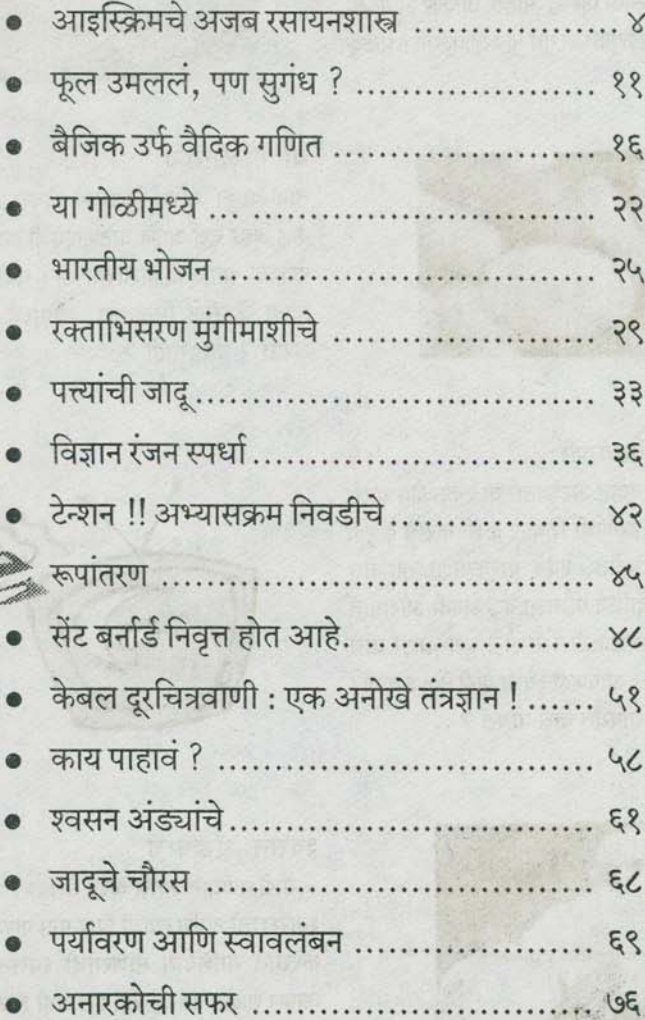 • आइस्क्रिमचे अजब रसायनशास्त्र .................. ४
• फूल उमललं, पण सुगंध ? ...................... ११
• बैजिक उर्फ वैदिक गणित ....................... १६
• या गोळीमध्ये ... .............................. २२
• भारतीय भोजन ................................. २५
• रक्ताभिसरण मुंगीमाशीचे ....................... २९
• पत्त्यांची जादू ................................... ३३
• विज्ञान रंजन स्पर्धा .............................. ३६
• टेन्शन !! अभ्यासक्रम निवडीचे .................. ४२
रूपांतरण ...................................... ४५
• सेंट बर्नार्ड निवृत्त होत आहे. ..................... ४८
• केबल दूरचित्रवाणी : एक अनोखे तंत्रज्ञान ! ...... ५१
• काय पाहावं ? ................................. ५८
• श्वसन अंड्यांचे ................................ ६१
• जादूचे चौरस .................................. ६८
• पर्यावरण आणि स्वावलंबन ..................... ६९
• अनारकोची सफर .............................. ७६